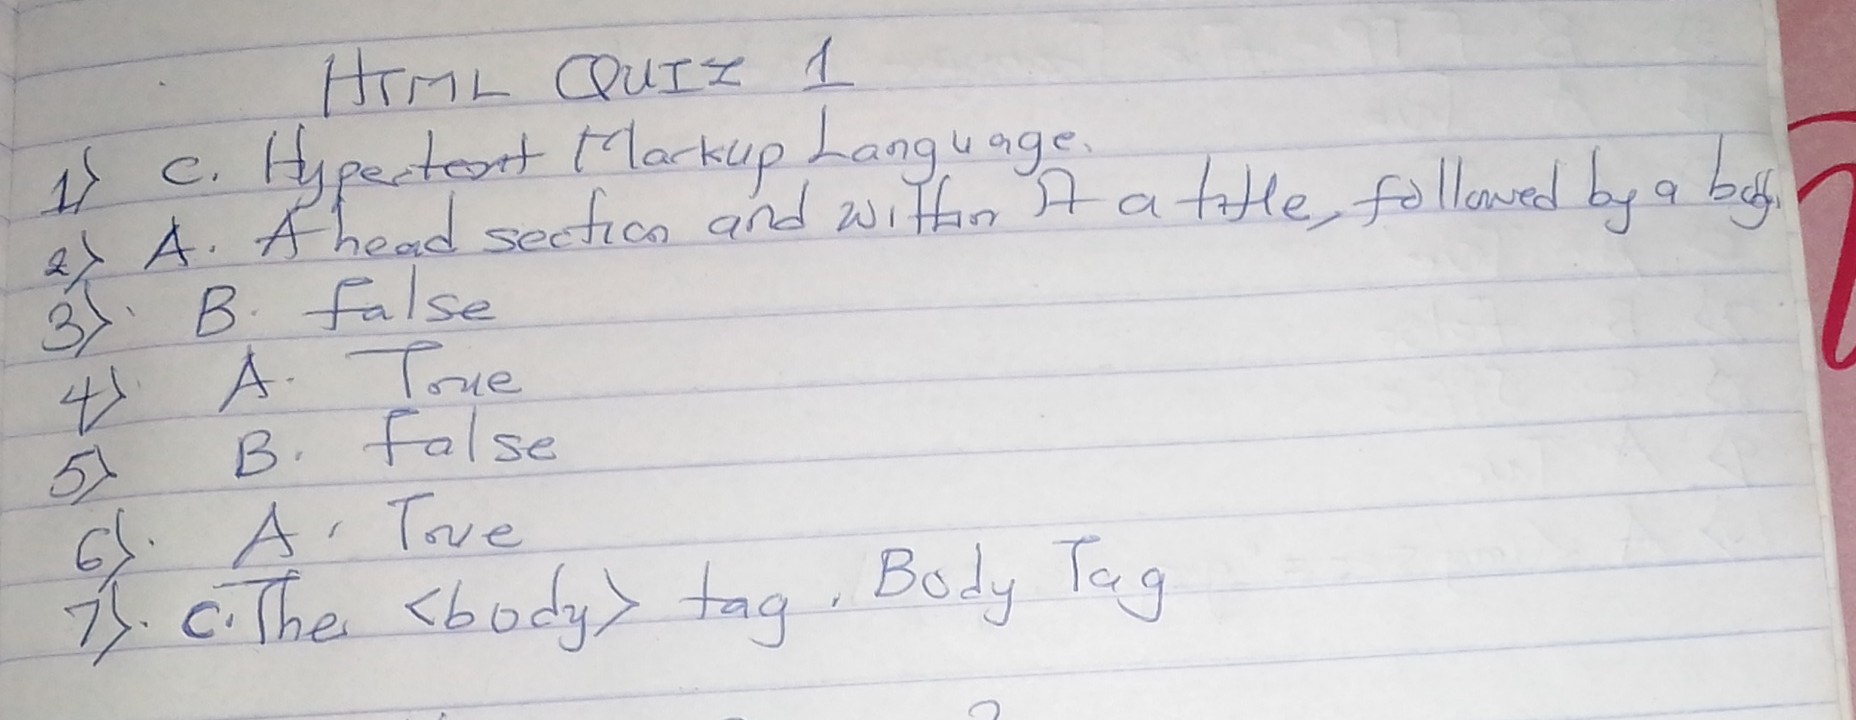 HTML QUIZ 1
1) C. Hypertext Markup Language.
2) A. A head section and within it a title, followed by a body.
3). B. False
4) A. True
5) B. False
6). A. True
7). C. The <body> tag. Body Tag